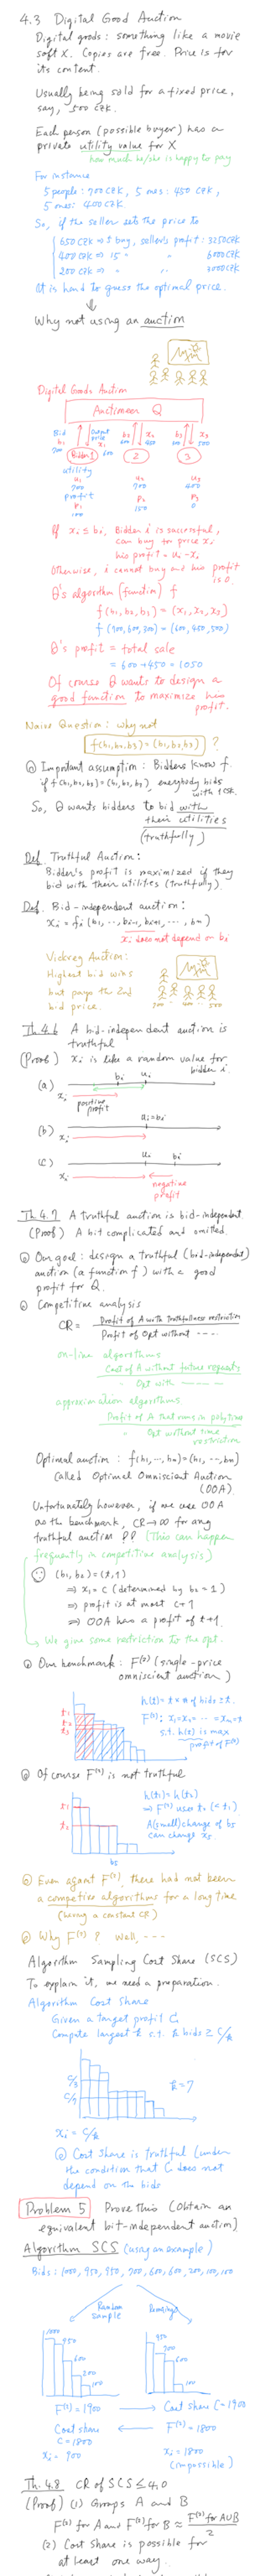 4.3 Digital Good Auction
Digital goods : something like a movie
soft X. Copies are free. Price is for
its content.
Usually being sold for a fixed price,
say, 500 CZK.
Each person (possible buyer) has a
private utility value for X
how much he/she is happy to pay
For instance
5 people : 700 CZK, 5 ones : 450 CZK,
5 ones : 400 CZK
So, if the seller sets the price to
650 CZK ⇒ 5 buy, seller's profit : 3250 CZK
400 CZK ⇒ 15 〃 〃 6000 CZK
200 CZK ⇒ 〃 〃 3000 CZK
It is hard to guess the optimal price.
⇓
Why not using an auction
Digital Goods Auction
Auctioneer Q
Bid b1 700
Output price x1 600
b2 600 x2 450
b3 x3 500
Bidder 1 2 3
utility
u1 u2 u3
700 700 400
profit
P1 P2 P3
100 150 0
If xi ≤ bi, Bidder i is successful,
can buy for price xi
his profit = ui - xi
Otherwise, i cannot buy and his profit
is 0.
Q's algorithm (function) f
f(b1, b2, b3) = (x1, x2, x3)
f(700, 600, 300) = (600, 450, 500)
Q's profit = total sale
= 600+450 = 1050
Of course Q wants to design a
good function to maximize his
profit.
Naive Question : why not
f(b1, b2, b3) = (b1, b2, b3) ?
Important assumption : Bidders know f.
if f(b1, b2, b3) = (b1, b2, b3), everybody bids
with 1 CZK.
So, Q wants bidders to bid with
their utilities
(truthfully)
Def. Truthful Auction :
Bidder's profit is maximized if they
bid with their utilities (truthfully)
Def. Bid-independent auction :
xi = fi (b1, ··, bi-1, bi+1, ···, bn)
xi does not depend on bi
Vickrey Auction :
Highest bid wins
but pays the 2nd
bid price.
Th 4.6 A bid-independent auction is
truthful
(Proof) xi is like a random value for
bidder i.
(a) bi ui
xi positive
profit
(b) ui=bi
xi
(c) ui bi
xi negative
profit
Th 4.7 A truthful auction is bid-independent.
(Proof) A bit complicated and omitted.
Our goal : design a truthful (bid-independent)
auction (a function f) with a good
profit for Q.
Competitive analysis
CR = Profit of A with truthfulness restriction
Profit of Opt without ----
on-line algorithms
Cost of A without future requests
Opt with ----
approximation algorithms
Profit of A that runs in poly time
Opt without time
restriction
Optimal auction : f(b1, ···, bn) = (b1, ···, bn)
Called Optimal Omniscient Auction
(OOA)
Unfortunately however, if we use OOA
as the benchmark, CR → ∞ for any
truthful auction !! (This can happen
frequently in competitive analysis)
(b1, b2) = (t, 1)
⇒ x1 = c (determined by b2 = 1)
⇒ profit is at most c+1
⇒ OOA has a profit of t+1
We give some restriction to the opt.
Our benchmark : F(2) (single-price
omniscient auction)
h(t) = t × # of bids ≥ t.
F(2) : x1 = x2 = ··· = xn = t
s.t. h(t) is max
profit of F(2)
Of course F(2) is not truthful
h(t1) = h(t2)
⇒ F(2) uses t2 (< t1)
A (small) change of b5
can change x5
b5
Even against F(2), there had not been
a competitive algorithms for a long time
(having a constant CR)
Why F(2) ? Well, ---
Algorithm Sampling Cost Share (SCS)
To explain it, we need a preparation.
Algorithm Cost Share
Given a target profit C,
Compute largest k s.t. k bids ≥ C/k
k = 7
xi = C/k
Cost Share is truthful (under
the condition that C does not
depend on the bids
Problem 5 Prove this (Obtain an
equivalent bit-independent auction)
Algorithm SCS (using an example)
Bids : 1000, 950, 950, 700, 600, 600, 200, 100, 100
Random
sample
Remaining
1000 950 600 200 100
950 700 600 100
F(2) = 1900 → Cost share C = 1900
Cost share ← F(2) = 1800
C = 1800
xi = 900
xi = 1800
(impossible)
Th. 4.8 CR of SCS ≤ 4.0
(Proof) (1) Groups A and B
F(2) for A and F(2) for B ≈ F(2) for A∪B
2
(2) Cost Share is possible for
at least one way.